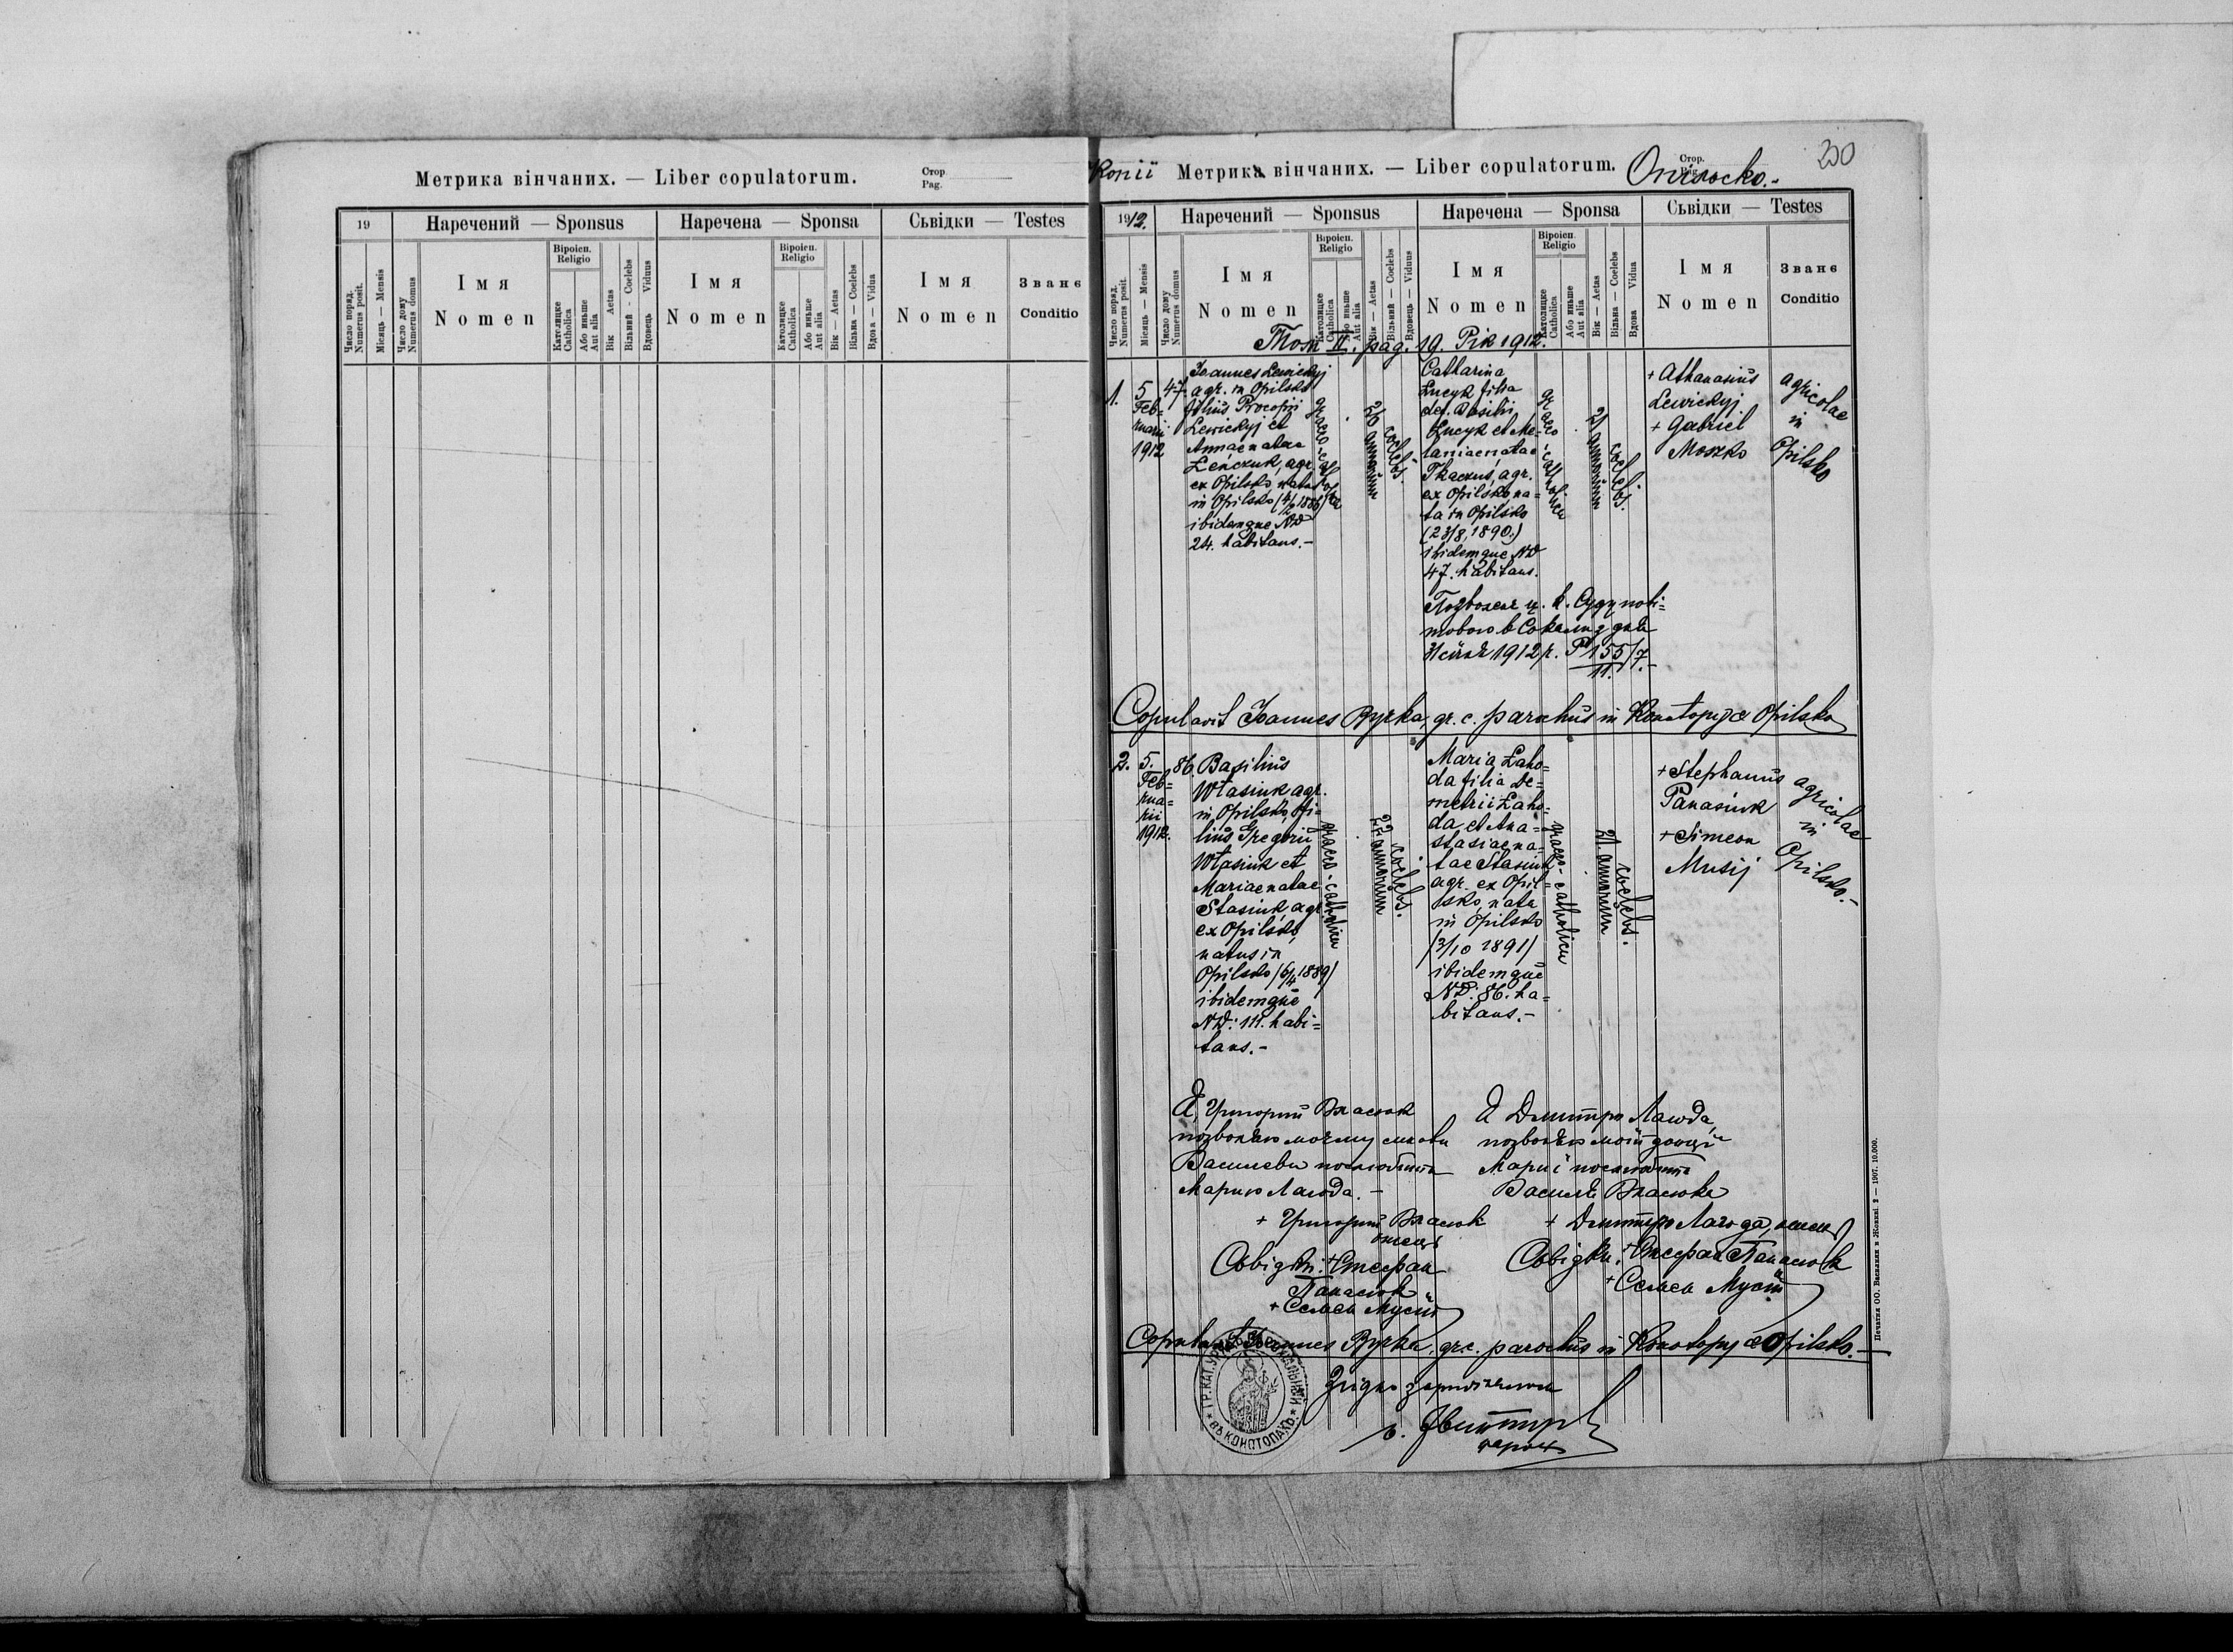 Метрика вінчаних. — Liber copulatorum.
Стор. Pag.
19
Наречений — Sponsus
Наречена — Sponsa
Сьвідки — Testes
Число поряд. Numerus posit.
Місяць — Mensis
Число дому Numerus domus
Імя Nomen
Віроісп. Religio
Католицке Catholica
Або иньше Aut alia
Вік Aetas
Вільний - Coelebs
Вдовець Viduus
Імя Nomen
Віроісп. Religio
Католицке Catholica
Або иньше Aut alia
Вік — Aetas
Вільна — Coelebs
Вдова — Vidua
Імя Nomen
Званє Conditio
Копії Метрика вінчаних. — Liber copulatorum.
Стор.
Опільско.-
200
1912.
Наречений — Sponsus
Наречена — Sponsa
Сьвідки — Testes
Число поряд. Numerus posit.
Місяць — Mensis
Число дому Numerus domus
Імя Nomen
Віроісп. Religio
Католицке Catholica
Або иньше Aut alia
Вік — Aetas
Вільний — Coelebs
Вдовець — Viduus
Імя Nomen
Віроісп. Religio
Католицке Catholica
Або иньше Aut alia
Вік — Aetas
Вільна — Coelebs
Вдова Vidua
Імя Nomen
Званє Conditio
Том II. pag. 19. Рік 1912.
1.
5
Feb=
ruarii
1912
47.
Ioannes Lewickyj
agr. in Opilsko
filius Procopii
Lewickyj et
Annae natae
Lenczuk, agr.
ex Opilsko natus
in Opilsko
ibidemque ND
24. habitans.-
graeco-catholica
26 annorum
coelebs.
Catharina
Lucyk filia
def. Basilii
Lucyk et Me=
laniae natae
Tkaczus, agr.
ex Opilsko na=
ta in Opilsko
(23/8, 1890.)
ibidemque ND
47. habitans.
graeco-catholica
21 annorum
coelebs.
+ Athanasius
Lewickyj
+ Gabriel
Moszko
agricolae
in
Opilsko
Позволенє ц. к. Суду пові=
тового в Сокали з дня
1912 р. P 155/7.-
11.
Copulavit Ioannes Byrka, gr. c. parochus in Konotopy & Opilsko
2.
5.
Feb=
rua=
rii
1912.
86.
Basilius
Własiuk agr.
in Opilsko, fi=
lius Gregorii
Własiuk et
Mariae natae
Stasiuk, agr.
ex Opilsko,
natus in
Opilsko (6/4 1889)
ibidemque
ND: 111. habi=
tans.-
graeco-catholica
22 annorum
coelebs.
Maria Łaho=
da filia De=
metrii Łaho=
da et Ana=
stasiae na=
tae Stasiuk
agr. ex Opil=
sko, nata
in Opilsko
(3/10 1891)
ibidemque
ND: 86. ha=
bitans.-
graeco-catholica
21. annorum
coelebs.
+ Stephanus
Panasiuk
+ Simeon
Musij
agricolae
in
Opilsko.-
Я, Григорий Власюк
позволяю моєму синови
Василеви послюбити
Марию Лагода.-
+ Григорий Власюк
отець
Сьвідки: + Стефан
Панасюк
+ Семен Мусій
Я Дмитро Лагода,
позволяю моїй доньці
Марії послюбити
Василя Власюка
+ Дмитро Лагода, отець
Сьвідки: + Стефан Панасюк
+ Семен Мусій
Copulavit Ioannes Byrka, gr. c. parochus in Konotopy & Opilsko.-
ГР. КАТ. УРЯДЪ ПАРОХІАЛЬНЫЙ * ВЪ КОНОТОПАХЪ *
Згідно з оригіналом
парох
Печатня ОО. Василиян в Жовкві 2 — 1907. 10.000.